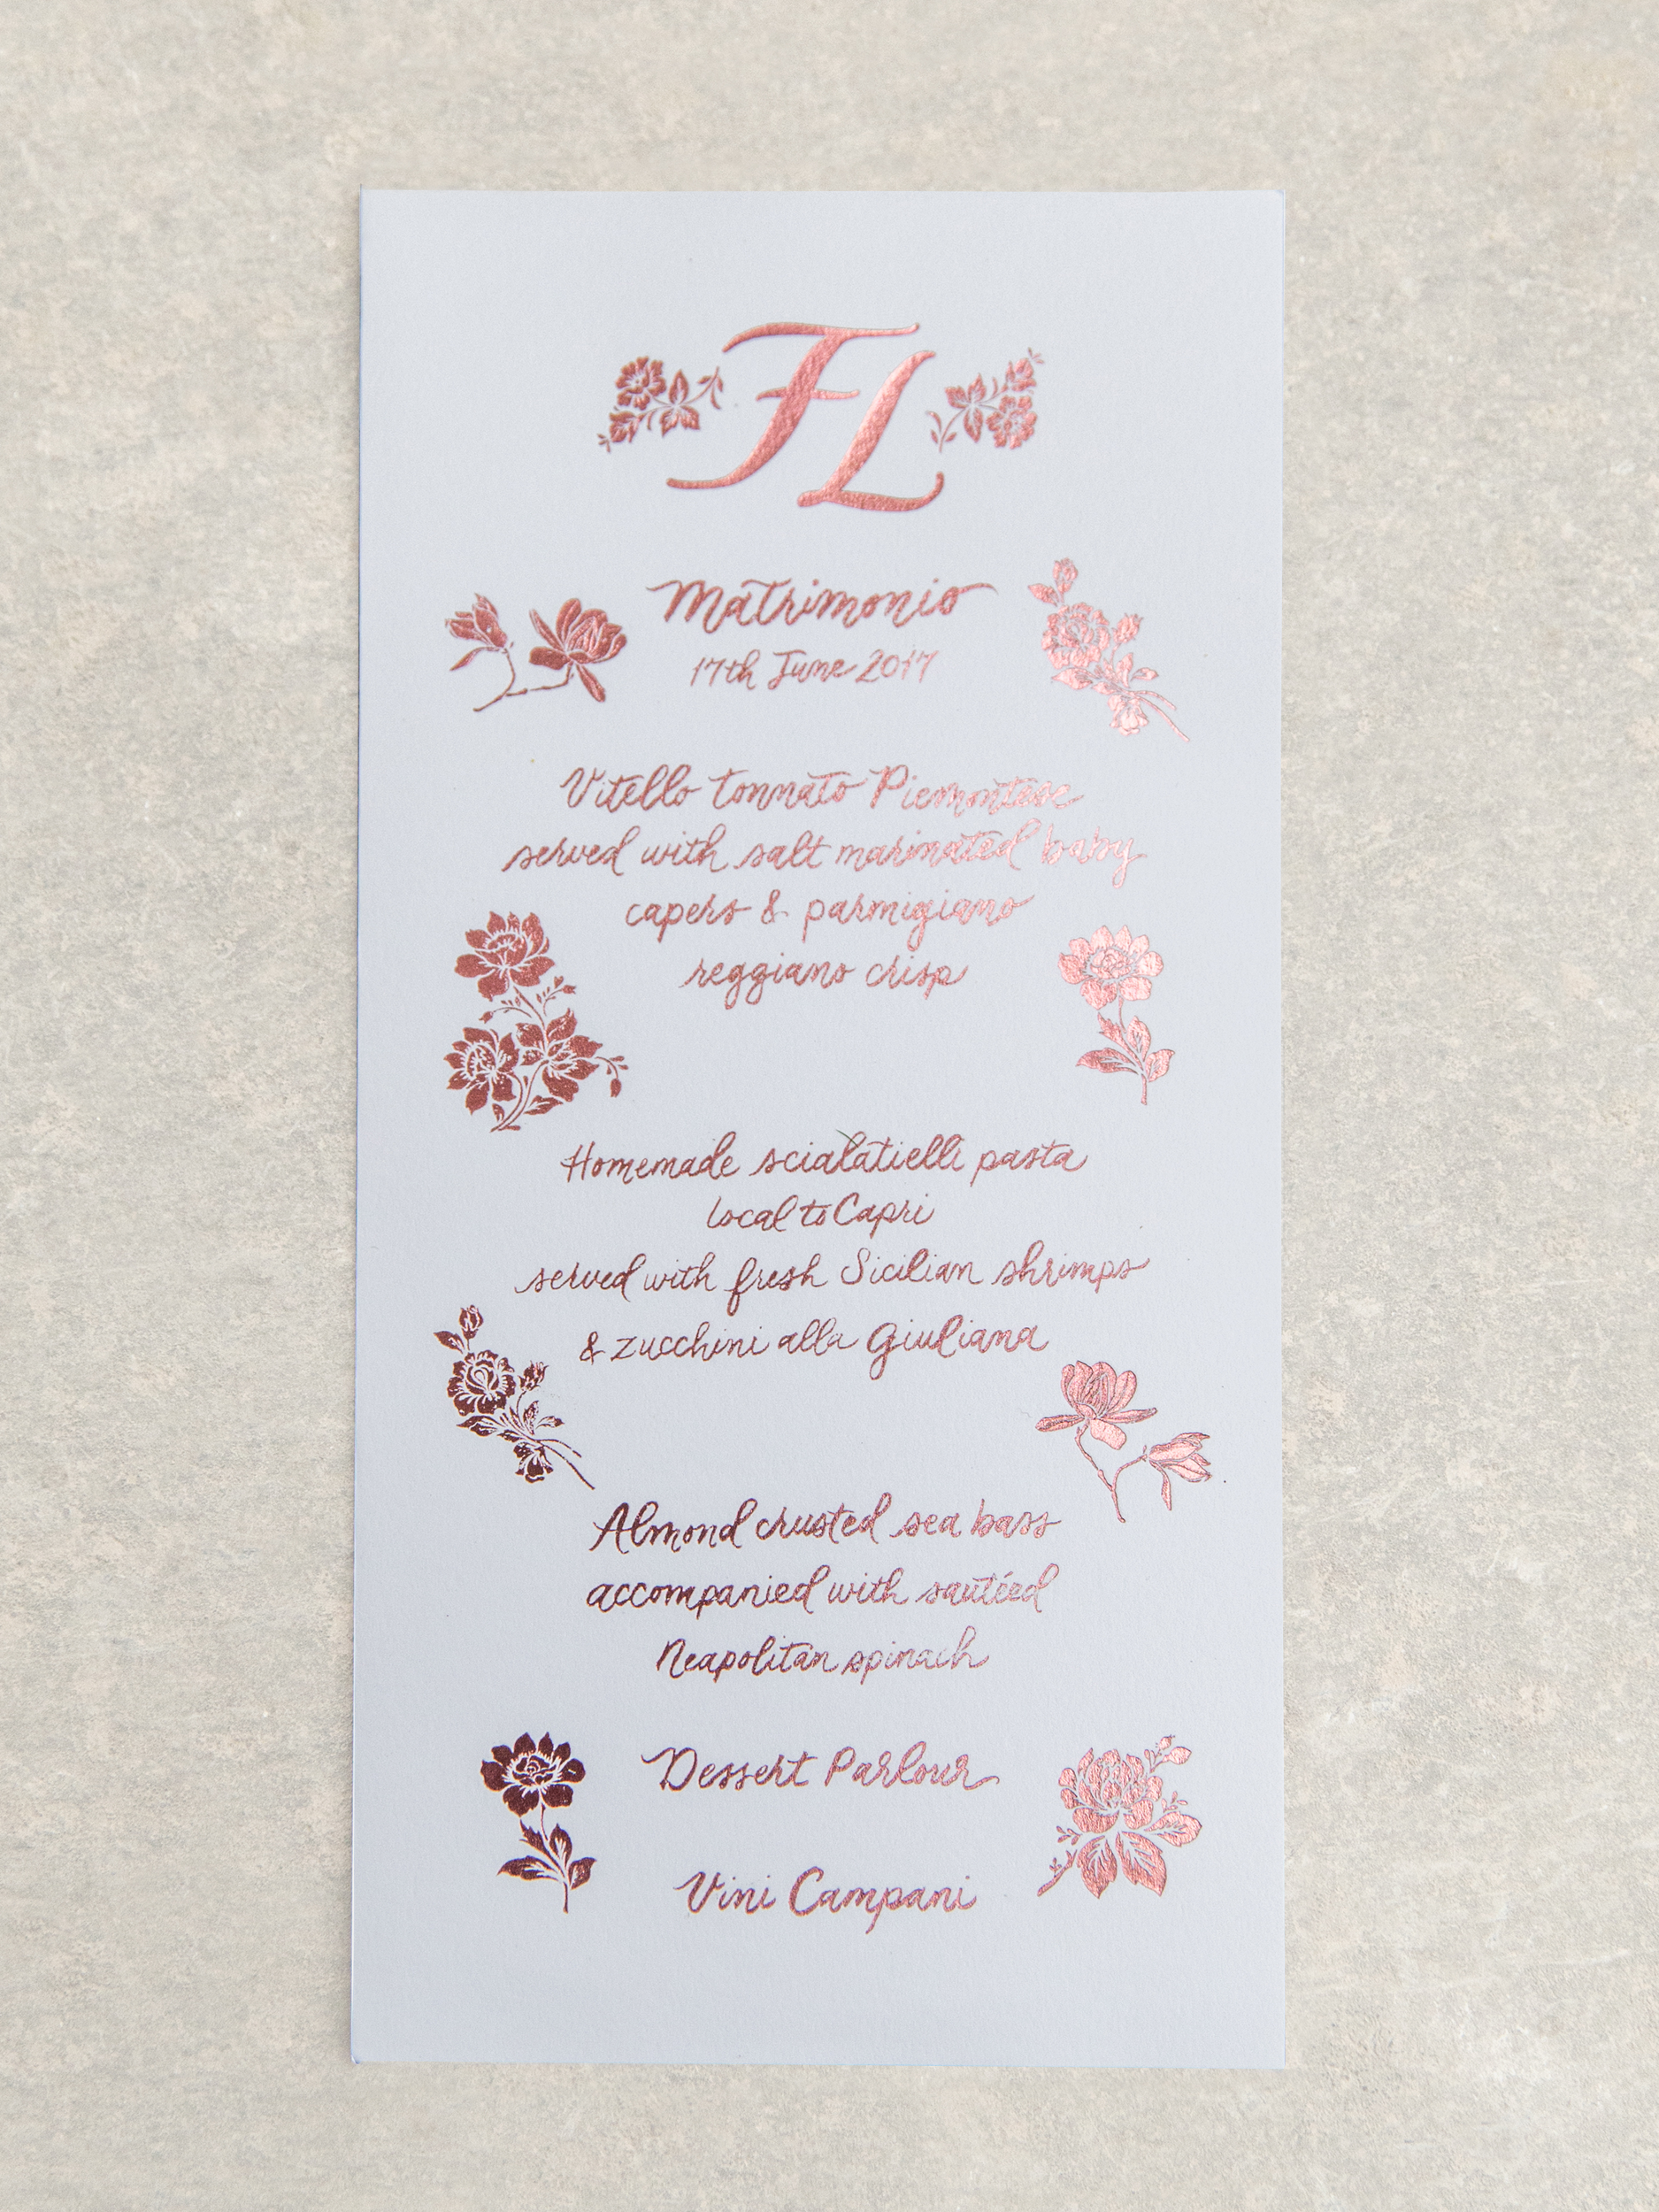 FL
Matrimonio
17th June 2017
Vitello tonnato Piemontese
served with salt marinated baby
capers & parmigiano
reggiano crisp
Homemade scialatielli pasta
local to Capri
served with fresh Sicilian shrimps
& zucchini alla Giuliana
Almond crusted sea bass
accompanied with sautéed
Neapolitan spinach
Dessert Parlour
Vini Campani